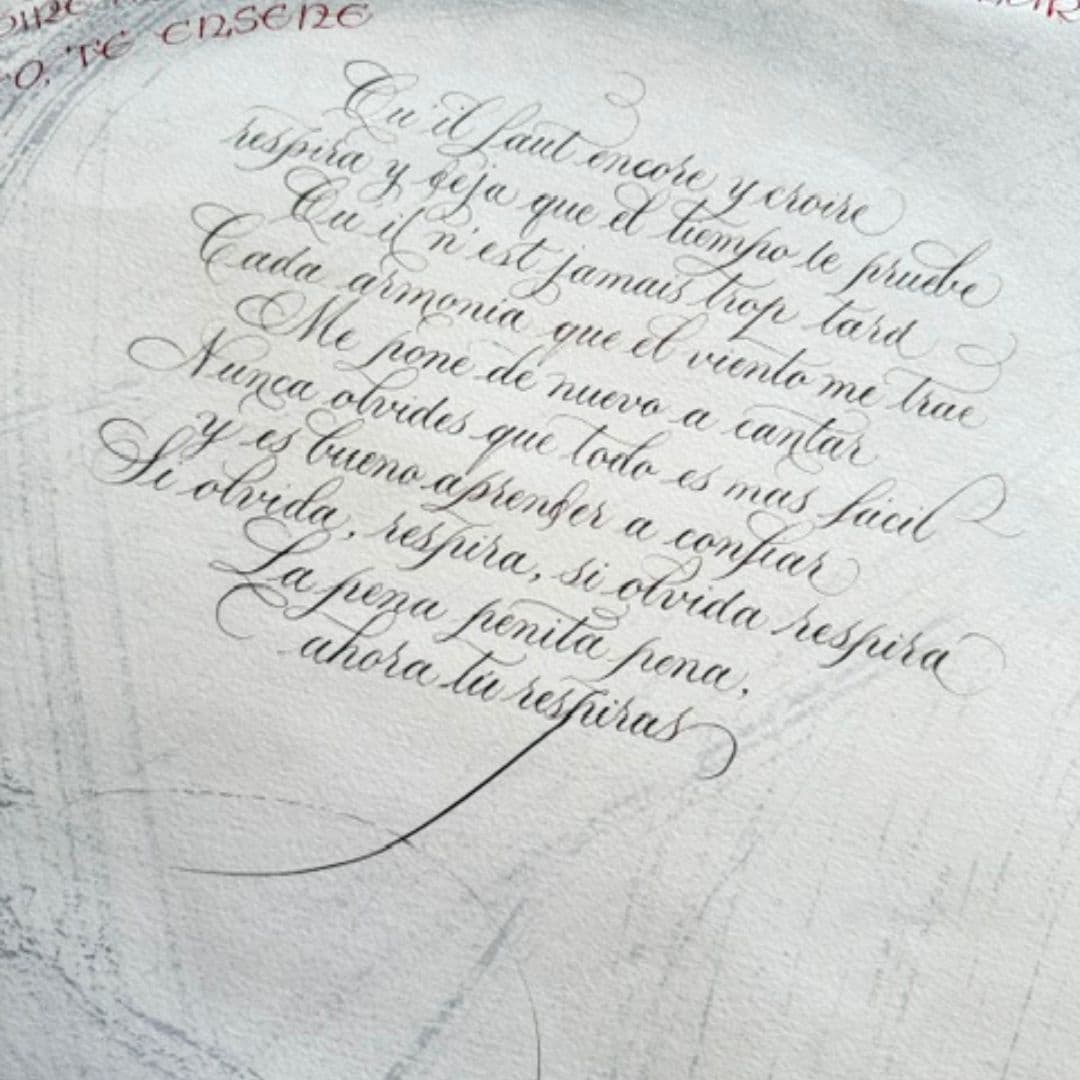 O, TE ENSEÑE
Qu'il faut encore y croire
respira y deja que el tiempo te pruebe
Qu il n'est jamais trop tard
Cada armonia que el viento me trae
Me pone de nuevo a cantar
Nunca olvides que todo es mas fácil
y es bueno aprender a confiar
Si olvida, respira, si olvida respira
La pena penita pena,
ahora tu respiras